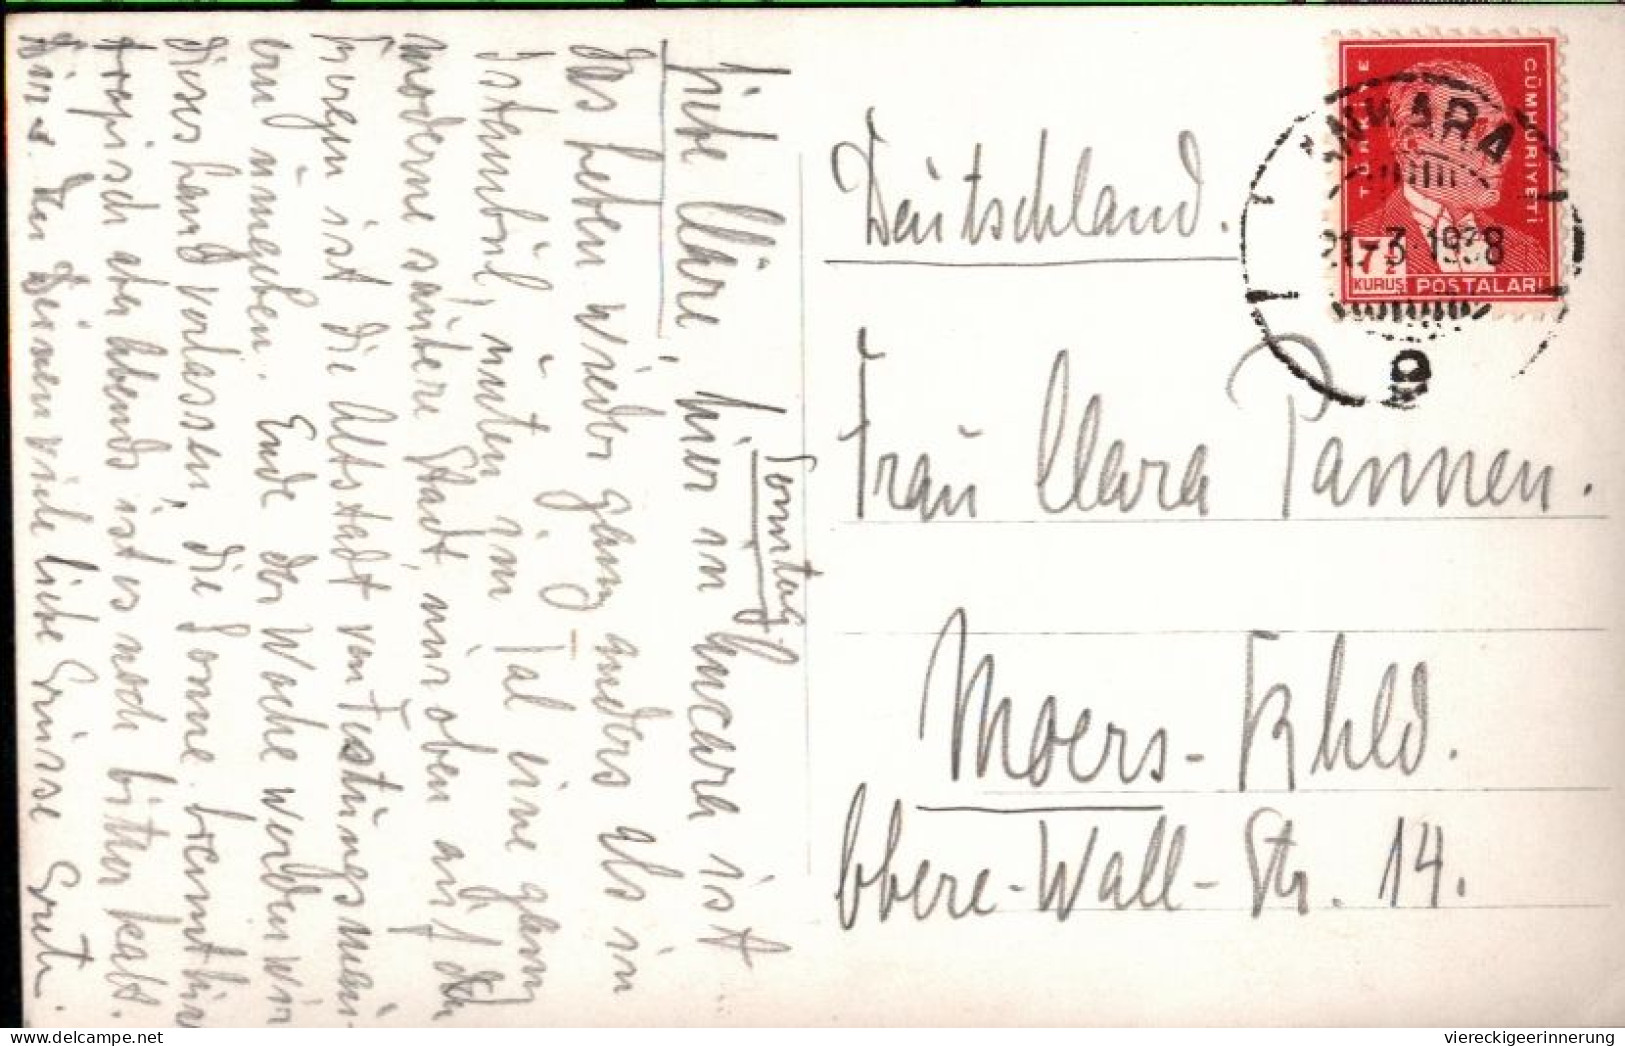 Sonntag.
Liebe Cläre, hier in Ancara ist
das Leben wieder ganz anders als in
Istambul, unten im Tal eine ganz
moderne saubere Stadt, nur oben auf den
Bergen ist die Altstadt von Festungsmau-
ern umgeben. Ende der Woche werden wir
dieses Land verlassen, die Sonne brennt hier
tropisch aber abends ist es noch bitter kalt.
Dir u. den Deinen viele liebe Grüsse Grete.
TÜRKİYE CÜMHURİYETİ
7½ KURUŞ POSTALARI
ANKARA
21.-3-1938
Deutschland.
Frau Clara Pannen.
Moers-Rhld.
Obere-Wall-Str. 14.
delcampe.net
viereckigeerinnerung